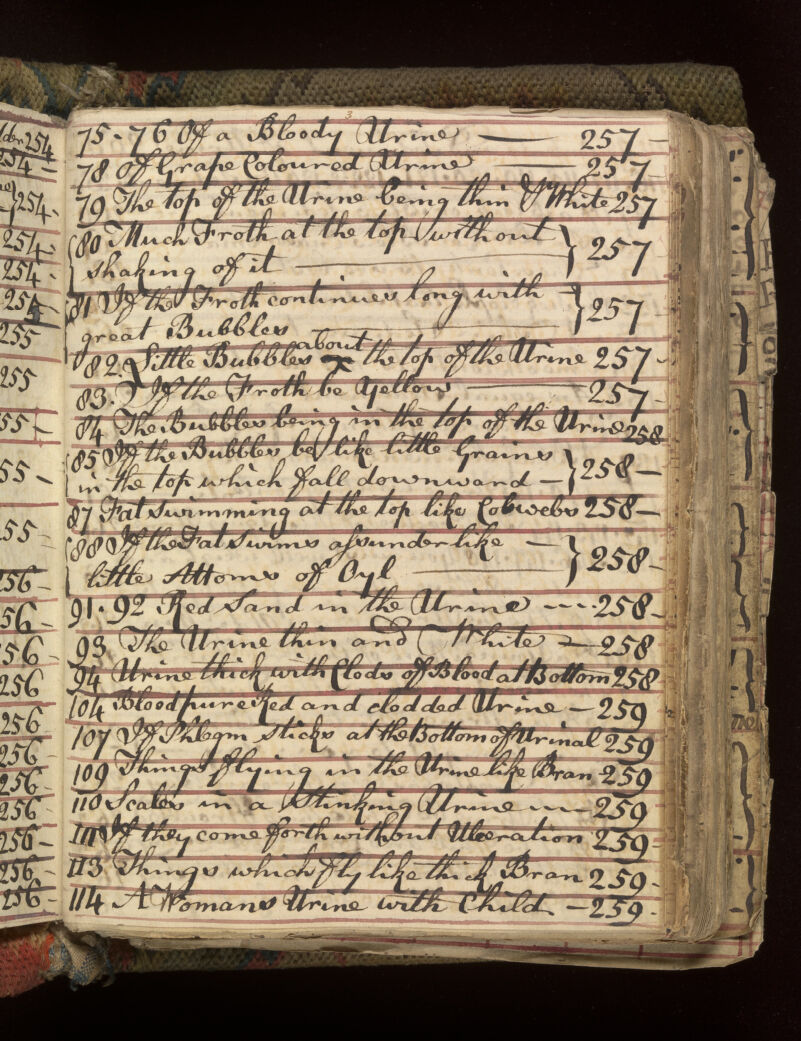 3
75-76 Of a Bloody Urine — 257 -
78 Of Grape Coloured Urine — 257 -
79 The top of the Urine being thin & White 257
80 Much Froth at the top without
shaking of it — } 257
81 If the Froth continues long with
great Bubbles — } 257
82. Little Bubbles about the top of the Urine 257 -
83. If the Froth be Yellow — 257 -
84 The Bubbles being in the top of the Urine 258
85 If the Bubbles be like little Grains
in the top which fall downward - } 258 —
87 Fat swimming at the top like Cobwebs 258 —
88 If the Fat swims assunder like —
little Attoms of Oyl — } 258 -
91. 92 Red Sand in the Urine — 258 -
93 The Urine thin and White — 258
94 Urine thick with Clods of Blood at Bottom 258
104 Blood pure Red and clodded Urine — 259
107 If Phlegm sticks at the Bottom of Urinal 259
109 Things flying in the Urine like Bran - 259
110 Scales in a Stinking Urine — 259
111 If they come forth without Ulceration 259 -
113 Things which fly like thick Bran 259 -
114 A Womans Urine with Child — 259 -
254
254 -
254 -
254 -
254 -
254
255
255
55 -
55 -
55 -
156 -
56 -
56 -
256
256 -
256 -
256 -
256
256 -
256 -
256 -